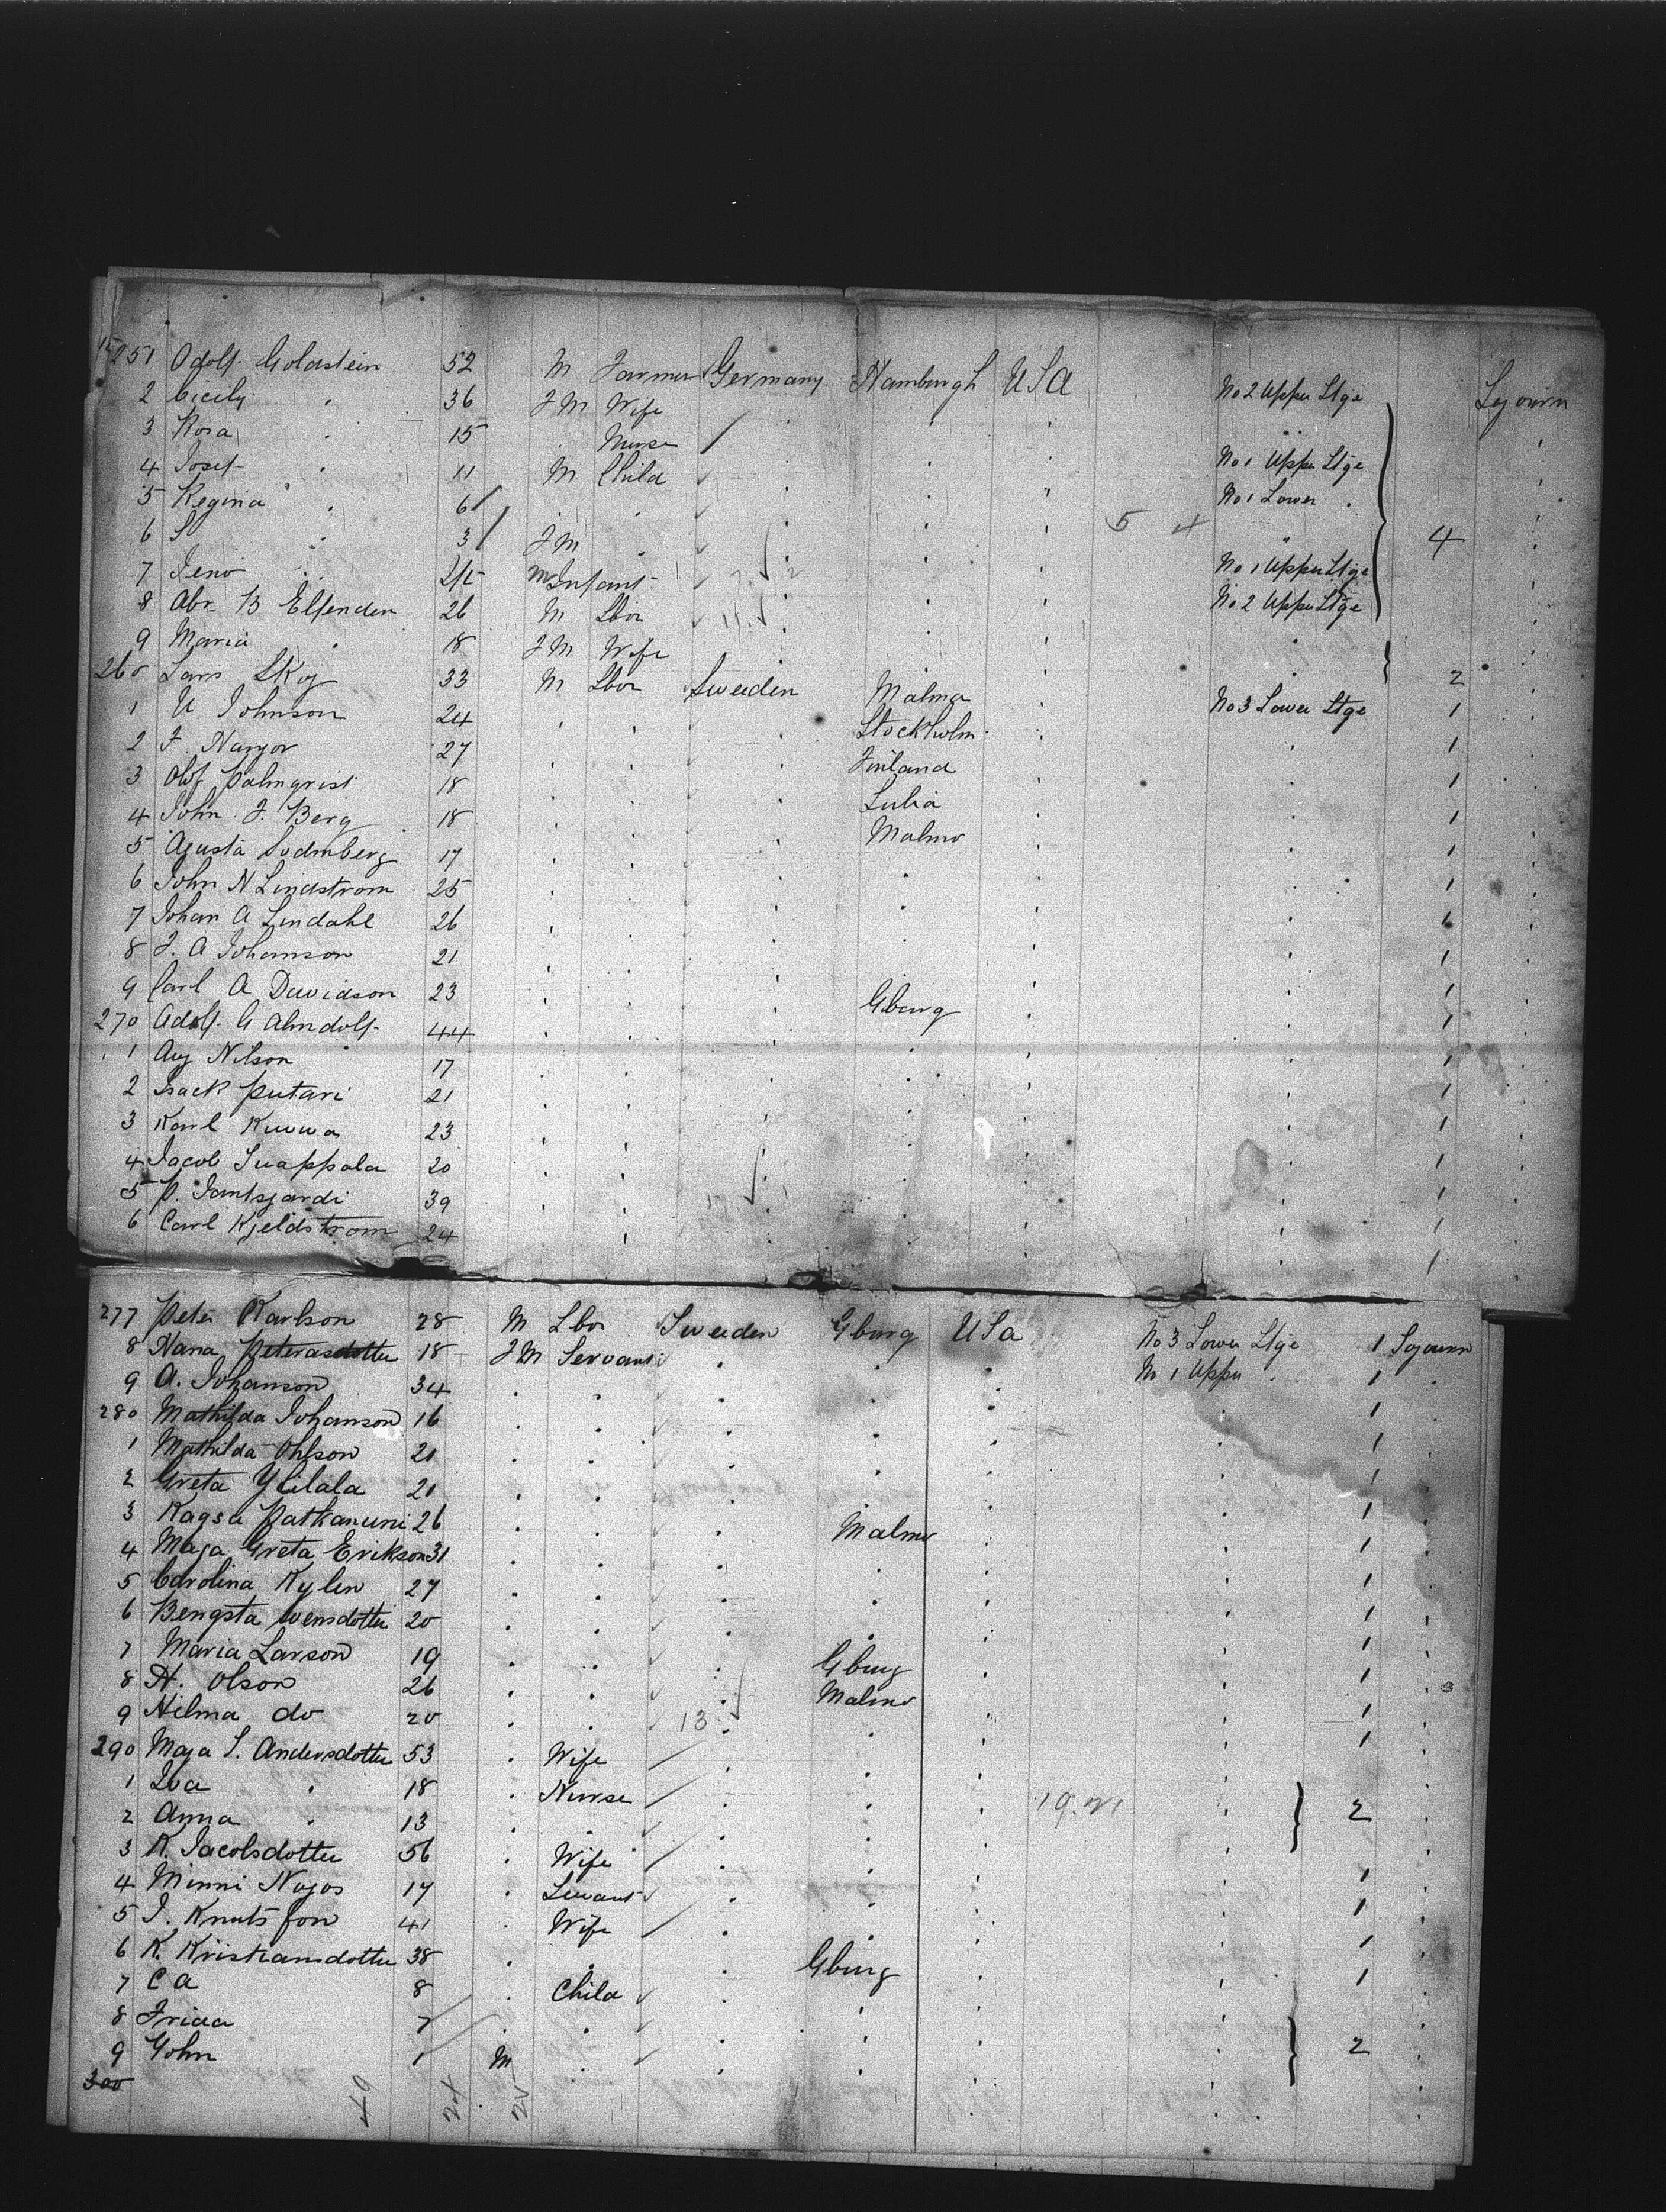 251 Adolf Goldstein 52 M Farmer Germany Hamburgh USA No 2 Upper Stge Sojourn
2 Cicily " 36 FM Wife
3 Rosa " 15 Nurse
4 Josef " 11 M Child No 1 Upper Stge
5 Regina " 6 No 1 Lower "
6 S " 3 FM 5 4 4
7 Jeno " M Infant No 1 Upper Stge
8 Abr. B Elfenden 26 M Lbor No 2 Upper Stge
9 Maria " 18 FM Wife
260 Lars Skog 33 M Lbor Sweeden Malmo 2
1 U Johnson 24 Stockholm No 3 Lower Stge 1
2 F. 27 Finland 1
3 Olof Palmqvist 18 Lulia 1
4 John F. Berg 18 Malmo 1
5 Agusta 17 1
6 John N Lindstrom 25 1
7 Johan A Lindahl 26 1
8 J. A Johanson 21 1
9 Carl A Davidson 23 Gburg 1
270 Adolf G Almdolf 44 1
1 Aug Nilson 17 1
2 Isack Putari 21 1
3 Karl Kuwwa 23 1
4 Jacob Suappala 20 1
5 P. 39 1
6 Carl Kjeldstrom 24 1
277 Peter Karlson 28 M Lbor Sweeden Gburg USa No 3 Lower Stge 1 Sojourn
8 Hana Peterasdotter 18 FM Servant No 1 Upper " 1
9 A. Johanson 34 1
280 Mathilda Johanson 16 1
1 Mathilda Ohlson 21 1
2 Greta Ylilala 21 1
3 Kagsa Patkanuni 26 Malmo 1
4 Maja Greta Erikson 31 1
5 Carolina Kylen 27 1
6 Bengsta Svensdotter 20 1
7 Maria Larson 19 Gburg 1
8 H. Olson 26 Malmo 1
9 Hilma do 20 13 1
290 Maja S. Andersdotter 53 Wife
1 " 18 Nurse 19.21 2
2 Anna " 13
3 K. Jacobsdotter 56 Wife 1
4 Minni Nojos 17 Servant 1
5 J. Knutsson 41 Wife 1
6 K. Kristiansdotter 38 Gburg 1
7 C A 8 Child
8 Frida 7 2
9 John 1 M
300 49 24 25